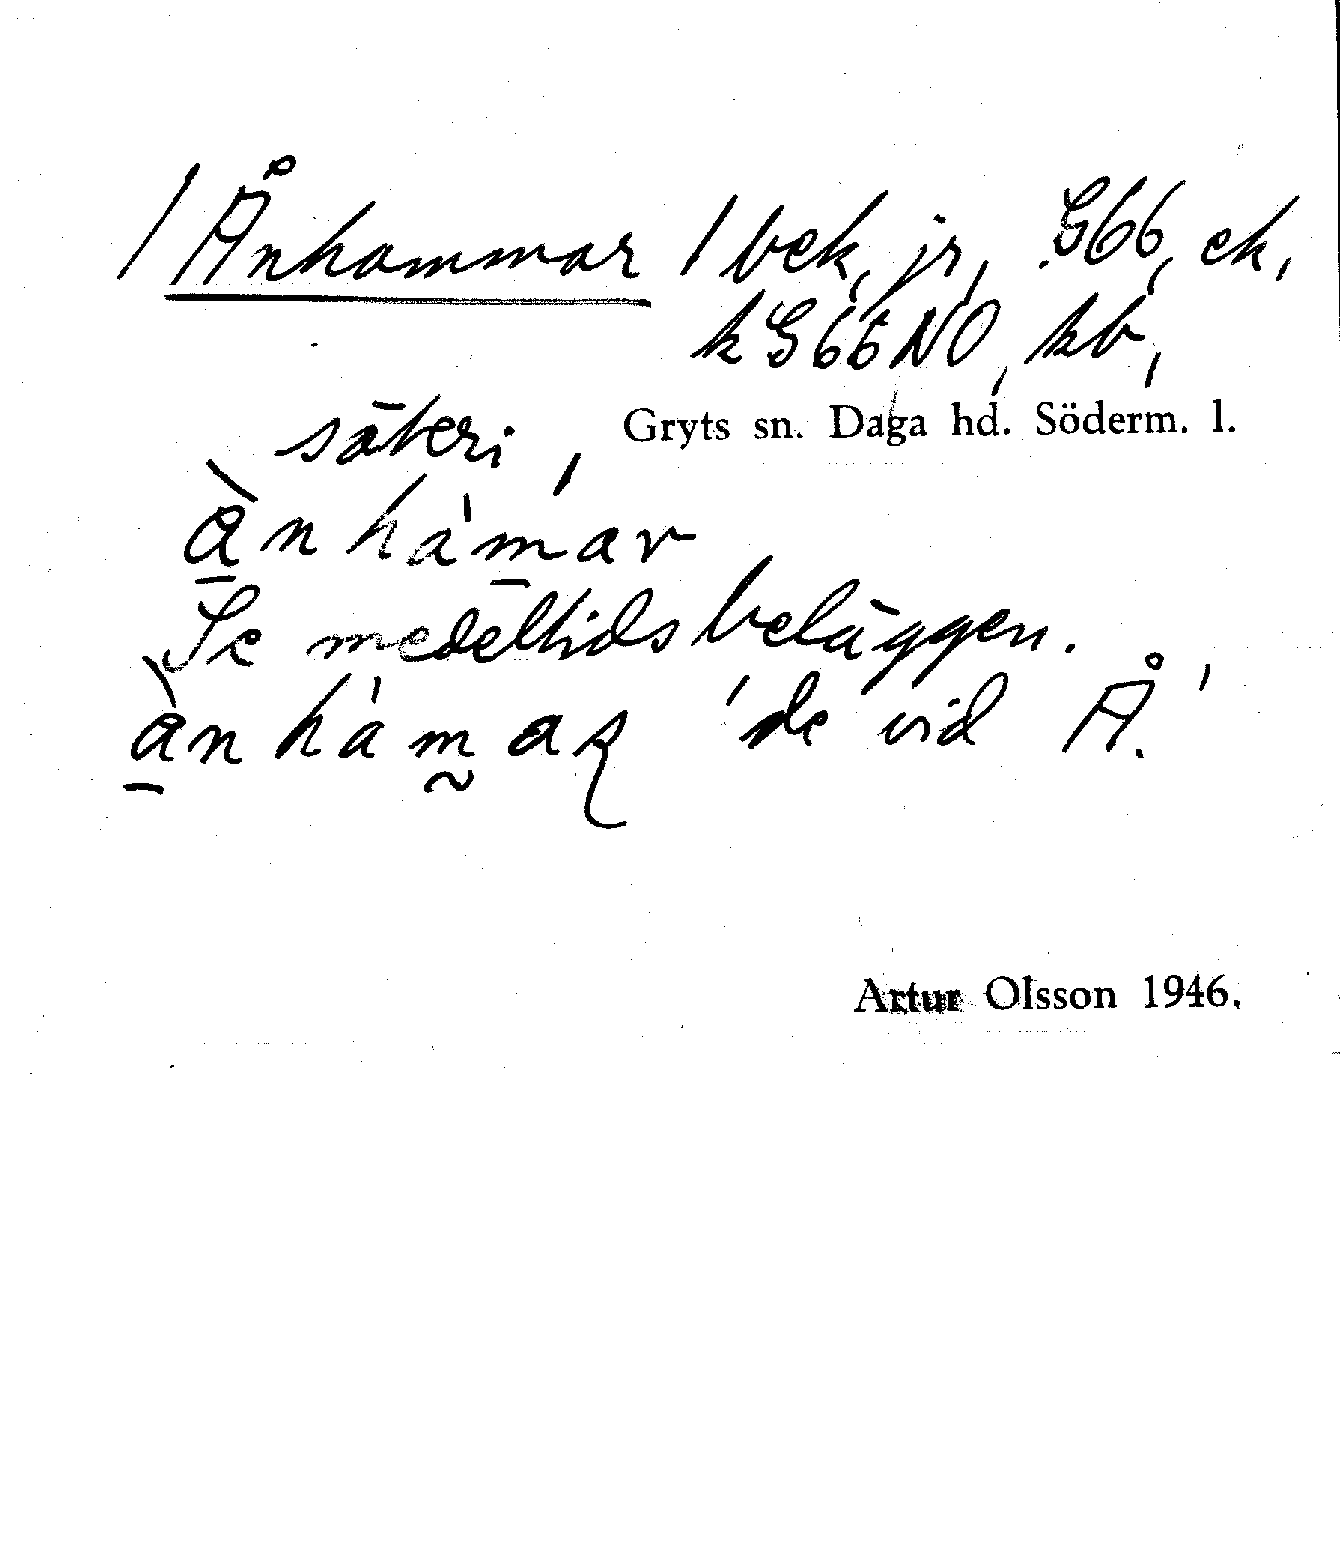 / Ånhammar / bek, jr, G66, ek,
k G66NO, kb,
säteri, Gryts sn. Daga hd. Söderm. l.
ànhámar
Se medeltidsbeläggen.
ànhámaʀ 'de vid Å.'
Artur Olsson 1946.